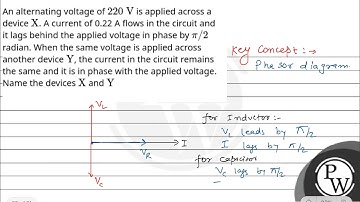 An alternating voltage of 220 V is applied across a
device X. A current of 0.22 A flows in the circuit and
it lags behind the applied voltage in phase by π/2
radian. When the same voltage is applied across
another device Y, the current in the circuit remains
the same and it is in phase with the applied voltage.
Name the devices X and Y
Key Concept :→
Phasor diagram
V_L
V_R
I
V_C
for Inductor :→
V_L leads by π/2
I lags by π/2
for Capacitor
V_C lags by π/2
PW